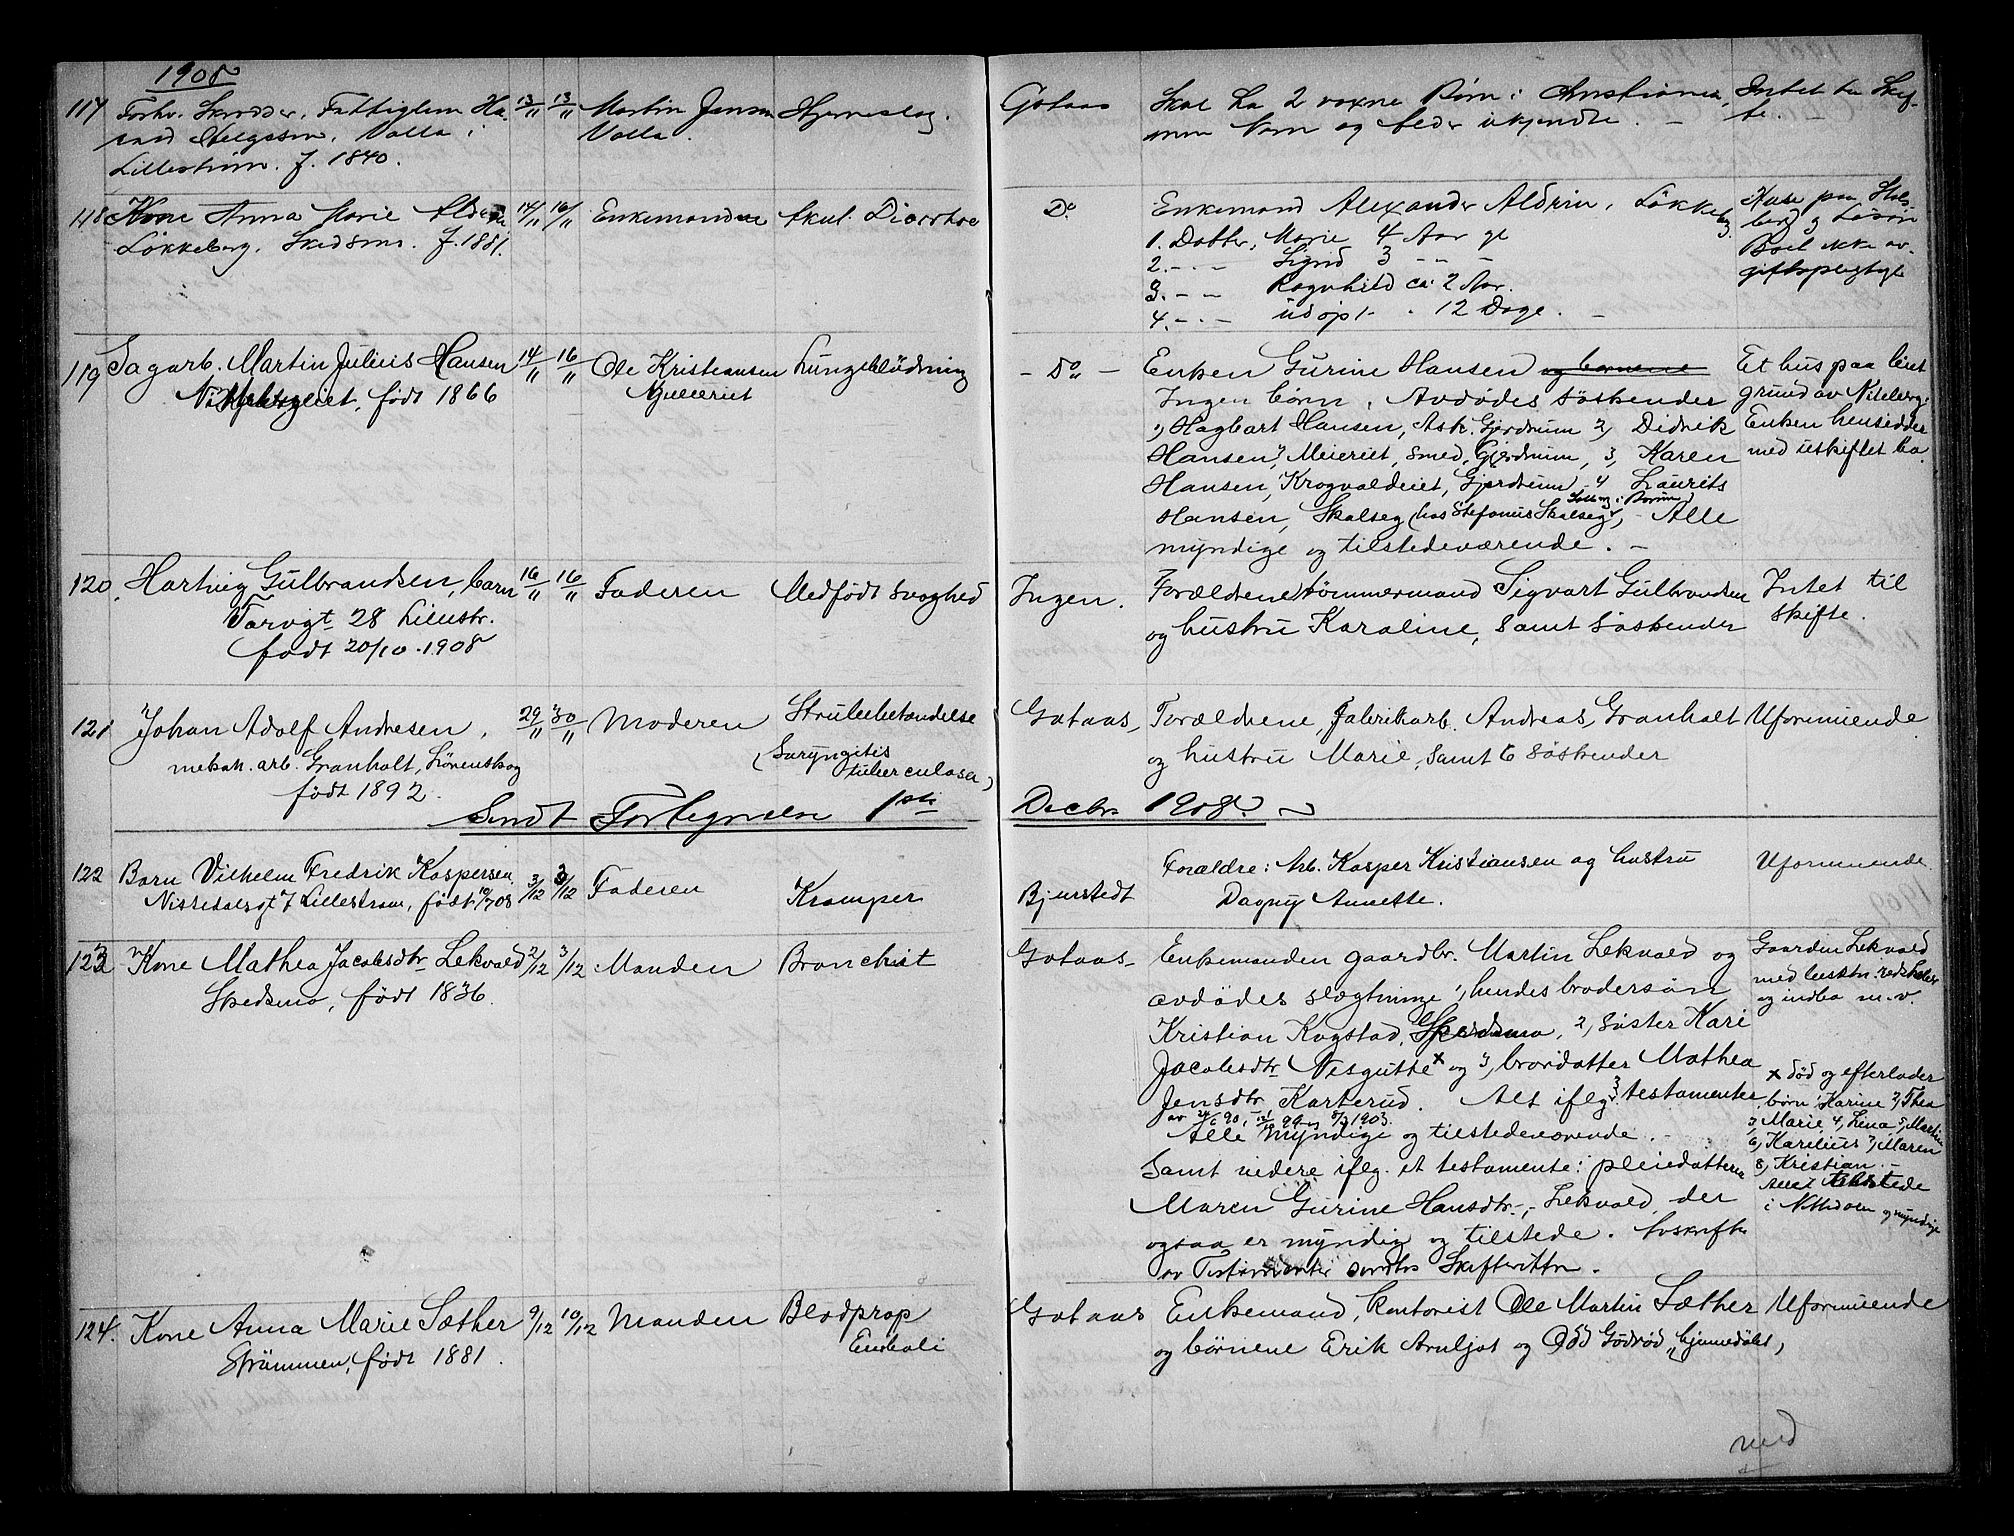 1908
117 Forhv. Skrædder, Fattiglem Ha- 13/11 13/11 Martin Jensen Hjerneslag. Gotaas Skal ha 2 voxne Børn i Christiania, Intet til Skif-
Helgesen, Volla i Volla. men Navn og Alder ukjendte. — te.
Lillestrøm. f. 1840.
118 Kone Anna Marie Aldrin 14/11 16/11 Enkemanden Akut Diarrhoe Do Enkemand Alexander Aldrin, Løkkeberg. Huse paa
Løkkeberg, Skedsmo. f. 1881. 1. Datter, Marie 4 Aar gl. og Løsøre
2. - - - Sigrid 3 - - - Boet ikke av-
3. - - Ragnhild ca. 2 Aar. giftspligtigt
4. - - - udøpt - 12 Dage. —
119 Sagarb. Martin Julius Hansen 14/11 16/11 Ole Kristiansen Lungeblödning - Do - Enken Gurine Hansen og børnene Et hus paa leiet
født 1866 Ingen børn, Avdødes søskender grund av Niteberg.
1, Hagbart Hansen, Ask, Gjerdrum 2, Didrik Enken hensidder
Hansen, Meieriet, Smed, Gjerdrum, 3, Karen med uskiftet bo.
Hansen, Krogvaldeiet, Gjerdrum 4 Laurits
Hansen, Skalseg (hos Stefanus Skalseg), - Alle
myndige og tilstedeværende. —
120. Hartvig Gulbrandsen, barn 16/11 16/11 Faderen Medfödt svaghed Ingen. Forældrene tömmermand Sigvart Gulbrandsen Intet til
Torvgt 28 Lillestr. og hustru Karoline, samt söskender skifte.
födt 20/10 1908
121 Johan Adolf Andresen, 29/11 30/11 Moderen Strubebetændelse Gotaas Forældrene, fabrikarb. Andreas Granholt Uformuende
mekan. arb. Granholt, Lörenskog (Laryngitis og hustru Marie, samt 6 söskender
födt 1892. tuberculosa)
Sendt Fortegnelsen 1ste Decbr 1908.
122 Barn Vilhelm Fredrik Kaspersen 3/12 3/12 Faderen Kramper Bjurstedt Forældre: Arb. Kasper Kristiansen og hustru Uformuende
Nittedalsgt 7 Lillestrøm, födt Dagny Annette.
123 Kone Mathea Jacobsdtr Lekvold 2/12 3/12 Manden Bronchit Gotaas Enkemanden gaardbr. Martin Lekvold og Gaarden Lekvold
Skedsmo, födt 1836. avdödes slægtninge 1, hendes brodersön med besætn. redskaber
Kristian Kogstad, 2, söster Kari og indbo m.v.
Jacobsdtr Nesgutte x og 3, brordatter Mathea
Jensdtr Karterud. Alt iflg. 3 testamenter x död og efterlader
av 24/6 90, 99 og 1903. börn 1, Karine 2, Thea
Alle myndige og tilstedeværende. 3, Marie 4, Lina 5, Martin
Samt videre iflg. et testamente: pleiedatteren 6, Karelius 7, Maren
Maren Gurine Hansdtr, Lekvold, der 8, Kristian —
ogsaa er myndig og tilstede. Avskrifter Alle tilstede
av Testamenter sendtes Skifteretten. i Nittedalen og myndige
124. Kone Anna Marie Sæther 9/12 10/12 Manden Blodprop Gotaas Enkemand, kontorist Ole Martin Sæther Uformuende
Strömmen, födt 1881. Emboli og börnene Erik Arnljot og Odd Godröd, hjemmedöbt,
med